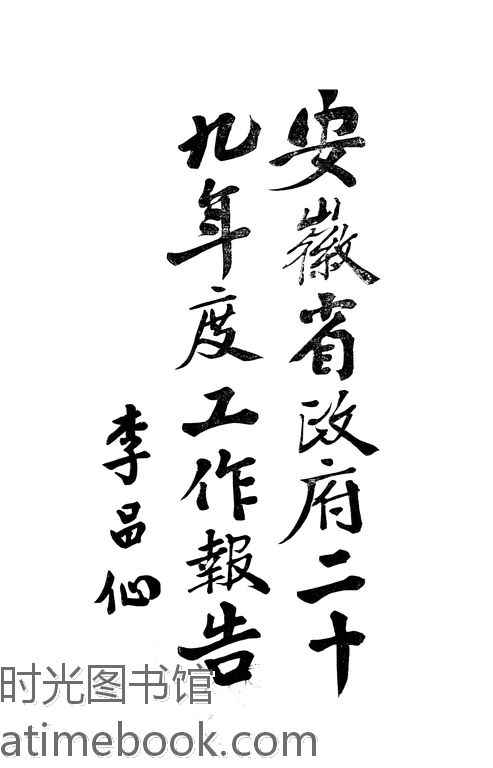 安徽省政府二十
九年度工作報告
李品仙
时光图书馆
atimebook.com